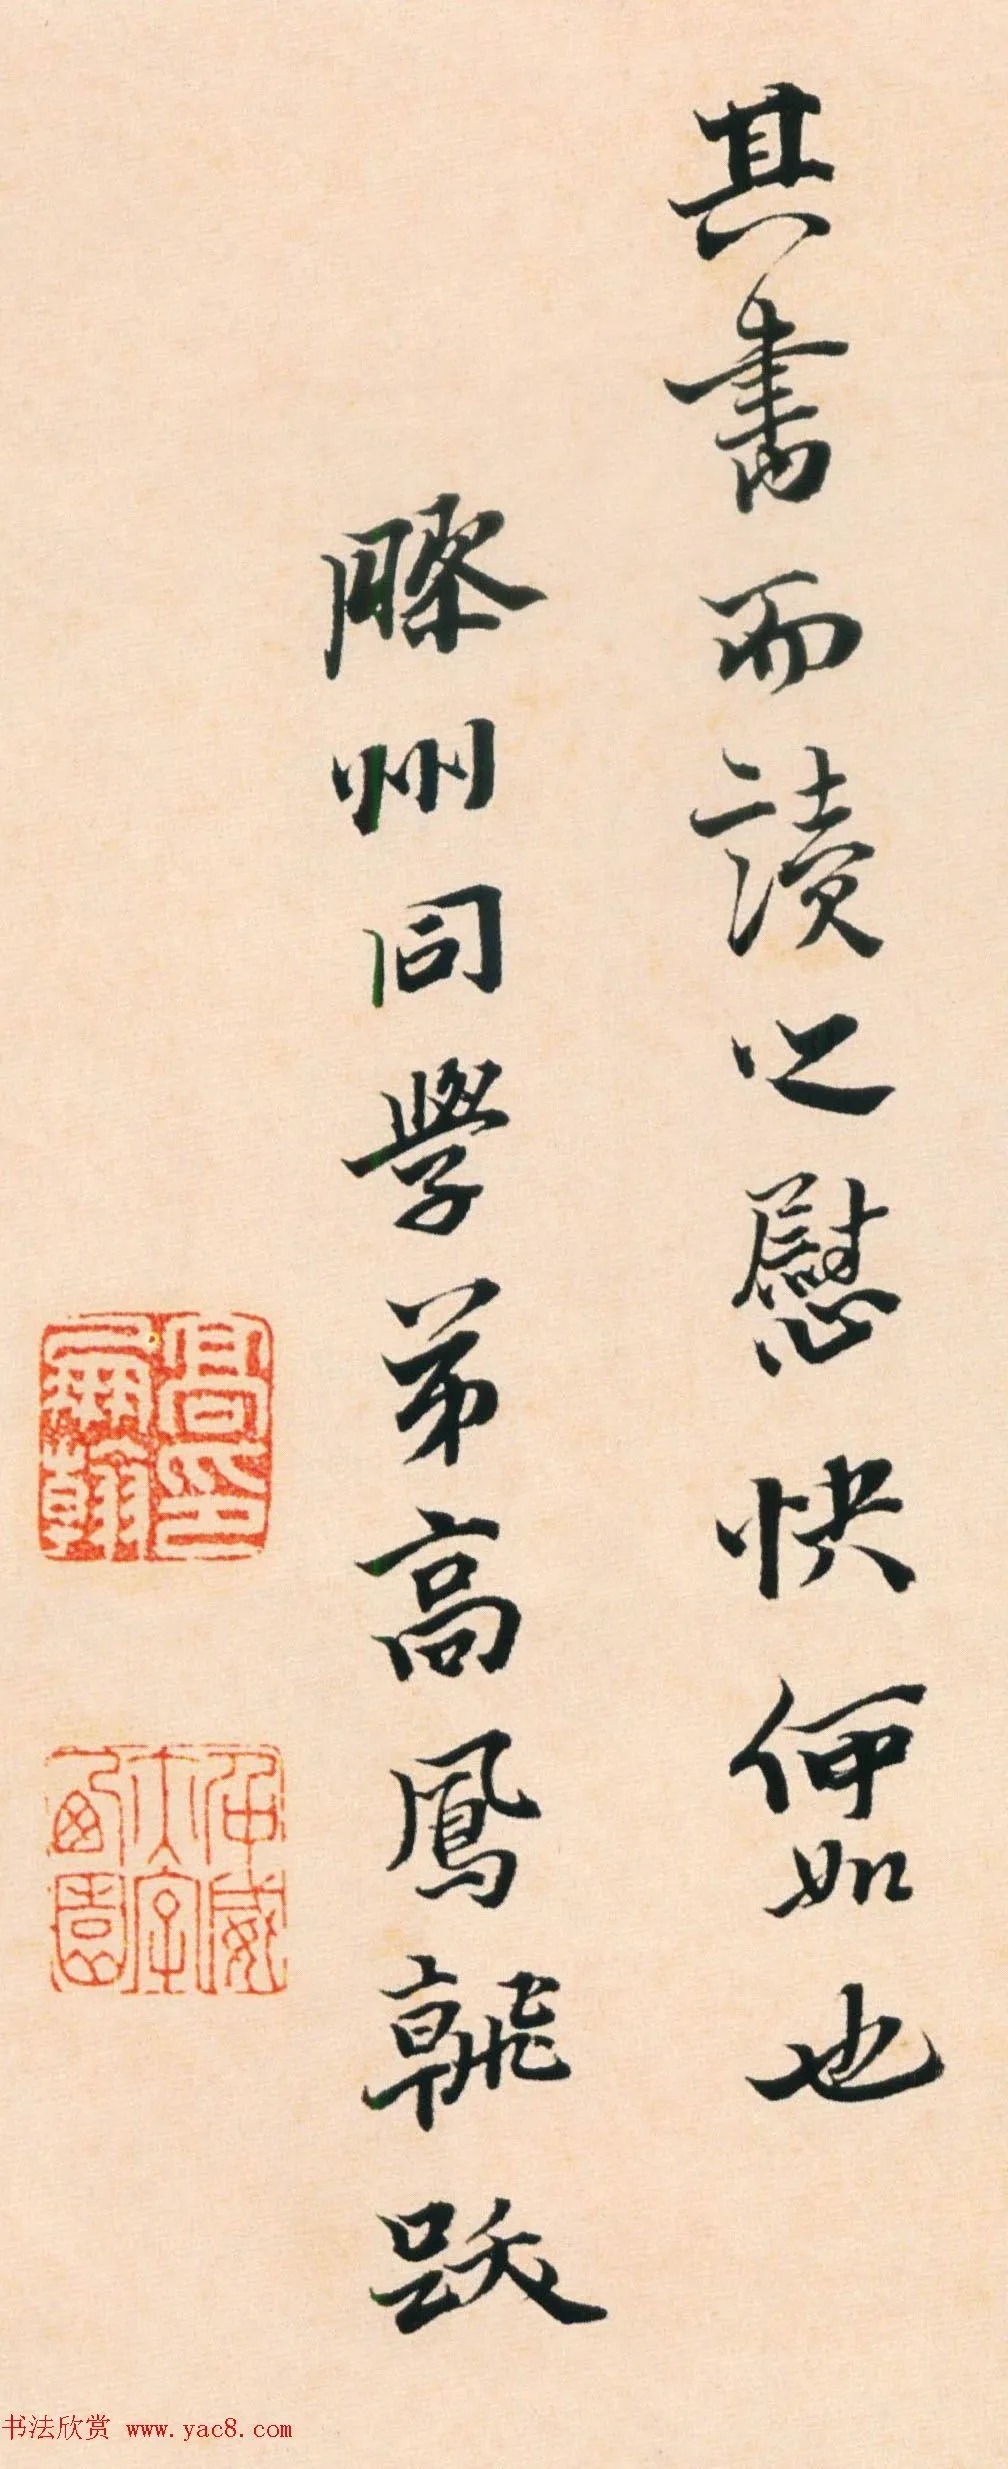 其書而讀之慰快何如也
膠州同學弟高鳳翰跋
高印鳳翰
西園
书法欣赏 www.yac8.com